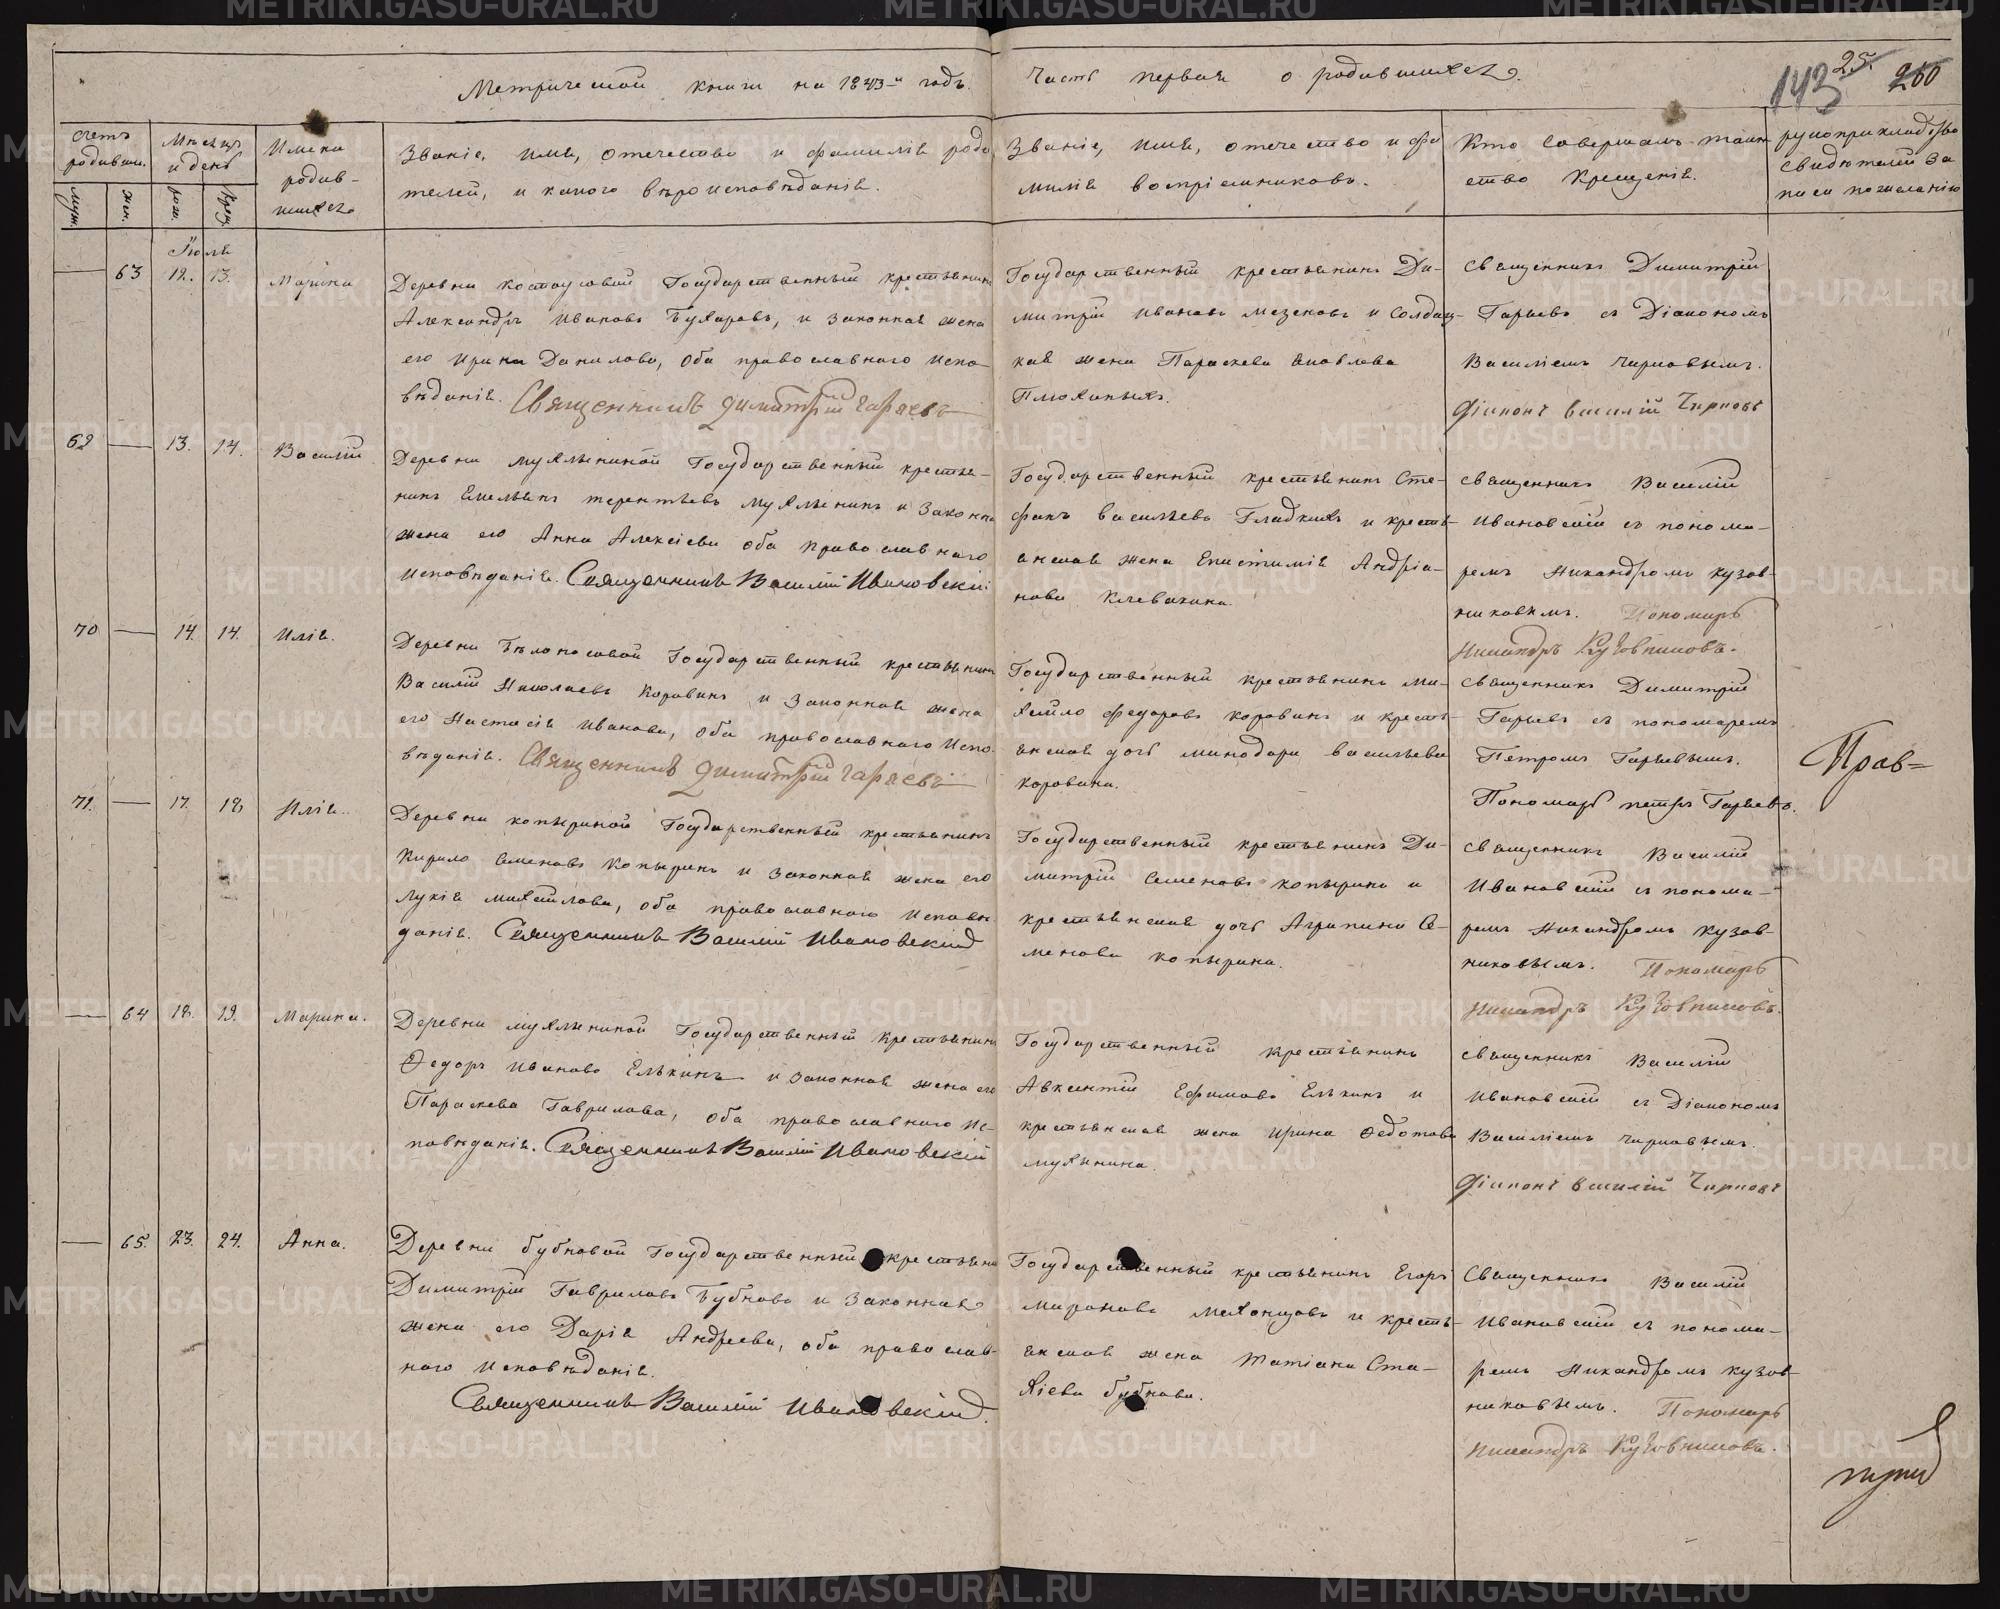 Метрической книги на 1843-й годъ.
Часть первая о родившихся.
143 25. 200
Счетъ родивш.
Муж.
Жен.
Мѣсяцъ и день
Рож.
Крещ.
Имена родив-
шихся
Званіе, имя, отечество и фамилія роди
телей, и какого вѣроисповѣданія.
Званіе, имя, отечество и фа
милія воспріемниковъ.
Кто совершалъ таин
ство Крещенія.
рукоприкладство
свидѣтелей за
писи по желанію
Іюля
63 12. 13. Марина
Деревни Костоусовой Государственный крестьянинъ
Александръ Ивановъ Бухаровъ, и законная жена
его Ирина Данилова, оба православного испо-
вѣданія. Священникъ Димитрій Гаряевъ
Государственный крестьянинъ Ди-
митрій Ивановъ Мезеновъ и Солдат-
кая жена Параскева Яковлева
Плюханыхъ.
Священникъ Димитрій
Гаряевъ съ Діакономъ
Василіемъ Чирковымъ.
Діаконъ Василій Чирковъ
69 13. 14. Василій
Деревни Мухлыниной Государственный крестья-
нинъ Емельянъ Терентьевъ Мухлынинъ и законна
жена его Анна Алексіева оба православного
исповѣданія. Священникъ Василій Ивановскій
Государственный крестьянинъ Сте-
фанъ Васильевъ Гладкихъ и кресть-
янская жена Епистимія Андріа-
нова Клевакина.
Священникъ Василій
Ивановскій съ понома-
ремъ Никандромъ Кузов-
никовымъ. Пономарь
Никандръ Кузовниковъ.
70 14. 14. Илія.
Деревни Бѣлоносовой Государственный крестьянинъ
Василій Николаевъ Коровинъ и законная жена
его Настасія Иванова, оба православного испо-
вѣданія. Священникъ Димитрій Гаряевъ
Государственный крестьянинъ Ми-
хайло Федоровъ Коровинъ и кресть-
янская дочь Минодора Васильева
Коровина.
Священникъ Димитрій
Гаряевъ съ пономаремъ
Петромъ Гаряевымъ.
Пономарь Петръ Гаряевъ.
Прав=
71. 17. 18 Илія.
Деревни Копыриной Государственный крестьянинъ
Кирило Семеновъ Копыринъ и законная жена его
Лукія Михайлова, оба православного исповѣ
данія. Священникъ Василій Ивановскій
Государственный крестьянинъ Ди-
митрій Семеновъ Копыринъ и
крестьянская дочь Агрипина Се-
менова Копырина.
Священникъ Василій
Ивановскій съ понома-
ремъ Никандромъ Кузов-
никовымъ. Пономарь
Никандръ Кузовниковъ.
64 18. 19. Марина.
Деревни Мухлыниной Государственный крестьянинъ
Ѳедоръ Ивановъ Елькинъ и законная жена его
Параскева Гаврилова, оба православного ис-
повѣданія. Священникъ Василій Ивановскій
Государственный крестьянинъ
Авксентій Ефимовъ Елькинъ и
крестьянская жена Ирина Федотова
Мухлынина.
Священникъ Василій
Ивановскій съ Діакономъ
Василіемъ Чирковымъ.
Діаконъ Василій Чирковъ
65. 23. 24. Анна.
Деревни Бубновой Государственный крестьянин
Димитрій Гавриловъ Бубновъ и законная
жена его Дарія Андреева, оба православ-
ного исповѣданія.
Священникъ Василій Ивановскій.
Государственный крестьянинъ Егоръ
Мироновъ Махонцовъ и кресть-
янская жена Татіана Ста-
хіева Бубнова.
Священникъ Василій
Ивановскій съ понома-
ремъ Никандромъ Кузов-
никовымъ. Пономарь
Никандръ Кузовниковъ.
METRIKI.GASO-URAL.RU